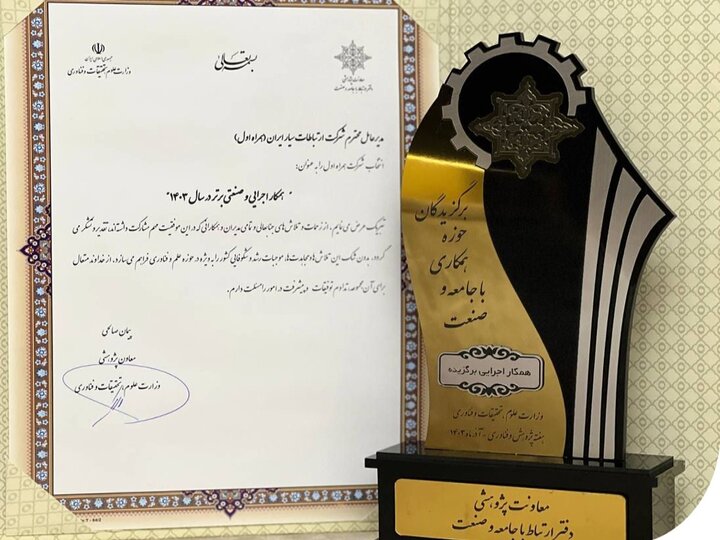 جمهوری اسلامی ایران
وزارت علوم، تحقیقات و فناوری
بسمه تعالی
معاونت پژوهشی
دفتر ارتباط با جامعه و صنعت
مدیرعامل محترم شرکت ارتباطات سیار ایران (همراه اول)
انتخاب شرکت همراه اول را به عنوان:
"همکار اجرایی و صنعتی برتر در سال ۱۴۰۳"
تبریک عرض می نمایم. از زحمات و تلاش های جنابعالی و تمامی مدیران و همکارانی که در این موفقیت مهم مشارکت داشته‌اند، تقدیر و تشکر می
گردد. بدون شک این تلاش‌ها و مجاهدت‌ها، موجبات رشد و شکوفایی کشور را به ویژه در حوزه علم و فناوری فراهم می سازد. از خداوند متعال
برای آن مجموعه، تداوم توفیقات و پیشرفت در امور را مسئلت دارم.
پیمان صالحی
معاون پژوهشی
وزارت علوم، تحقیقات و فناوری
برگزیدگان
حوزه
همکاری
با جامعه و
صنعت
همکار اجرایی برگزیده
وزارت علوم، تحقیقات و فناوری
هفته پژوهش و فناوری - آذرماه ۱۴۰۳
معاونت پژوهشی
دفتر ارتباط با جامعه و صنعت